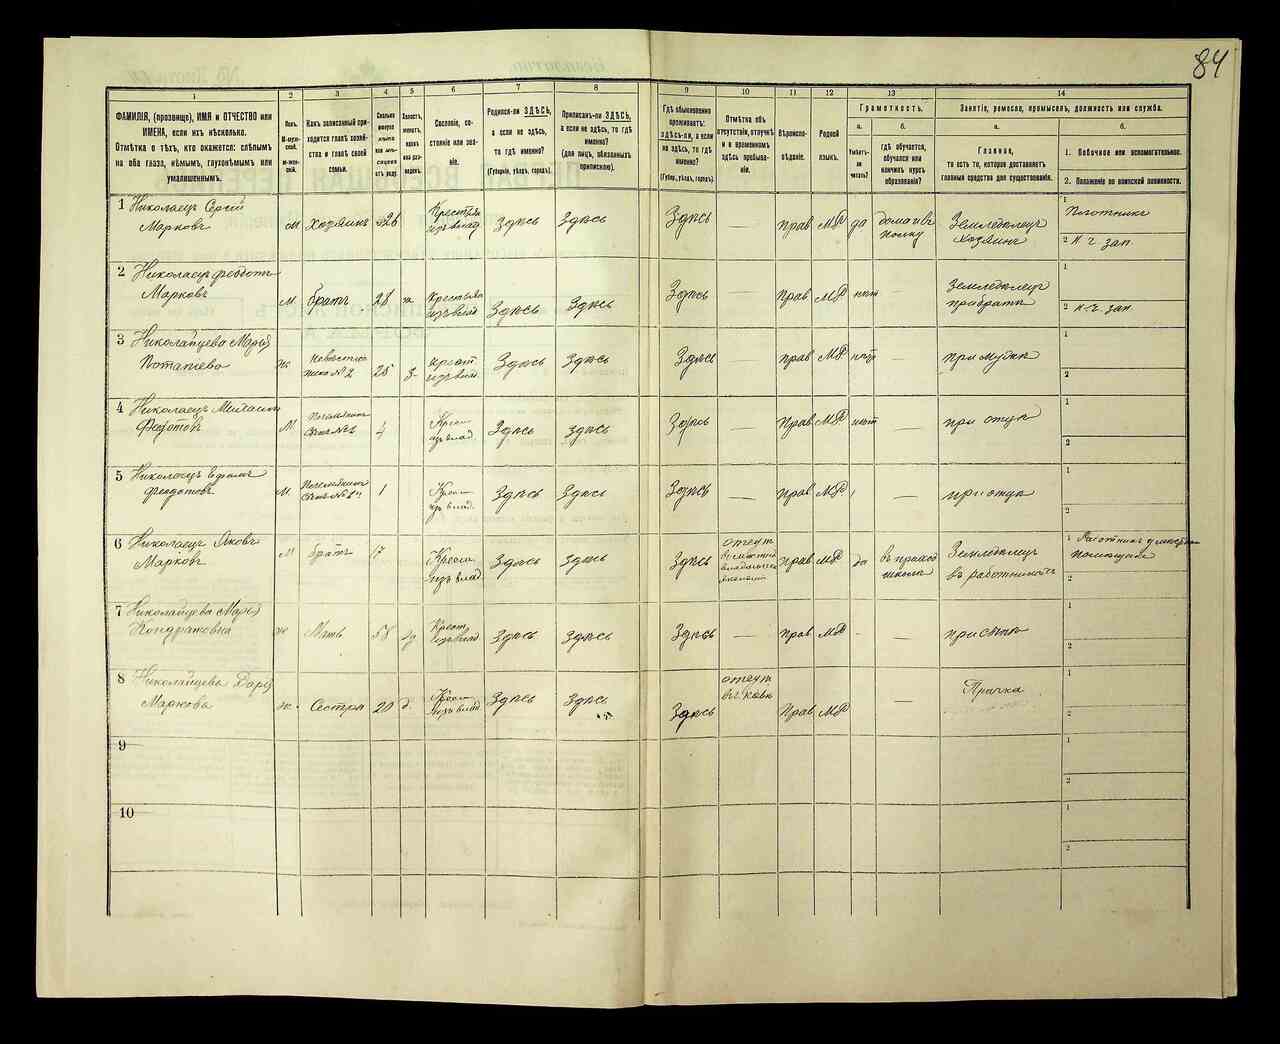 84
1
2
3
4
5
6
7
8
9
10
11
12
13
14
ФАМИЛІЯ, (прозвище), ИМЯ и ОТЧЕСТВО или
ИМЕНА, если ихъ нѣсколько.
Отмѣтка о тѣхъ, кто окажется: слѣпымъ
на оба глаза, нѣмымъ, глухонѣмымъ или
умалишеннымъ.
Полъ.
М-муж-
ской.
Ж-жен-
скій.
Какъ записанный при-
ходится главѣ хозяй-
ства и главѣ своей
семьи.
Сколько
минуло
лѣтъ
или мѣ-
сяцевъ
отъ роду.
Холостъ,
женатъ,
вдовъ
или раз-
веденъ.
Сословіе, со-
стояніе или зва-
ніе.
Родился-ли ЗДѢСЬ,
а если не здѣсь,
то гдѣ именно?
(Губернія, уѣздъ, городъ).
Приписанъ-ли ЗДѢСЬ,
а если не здѣсь, то гдѣ
именно?
(для лицъ, обязанныхъ
припискою).
Гдѣ обыкновенно
проживаетъ:
здѣсь-ли, а если
не здѣсь, то гдѣ
именно?
(Губер., уѣздъ, городъ).
Отмѣтка объ
отсутствіи, отлучкѣ
и о временномъ
здѣсь пребыва-
ніи.
Вѣроиспо-
вѣданіе.
Родной
языкъ.
Грамотность.
а.
Умѣетъ-
ли
читать?
б.
гдѣ обучается,
обучался или
кончилъ курсъ
образованія?
Занятіе, ремесло, промыселъ, должность или служба.
а.
Главное,
то есть то, которое доставляетъ
главныя средства для существованія.
б.
1. Побочное или вспомогательное.
2. Положеніе по воинской повинности.
1 Николаецъ Сергій
Марковъ
М Хозяинъ 26 Крестьян
изъ влад Здѣсь Здѣсь Здѣсь — Прав МР да
Земледѣлецъ
Хозяинъ
1 Плотникъ
2
зап.
2 Николаецъ Федотъ
Марковъ
М братъ 28 Крестьян
изъ влад Здѣсь Здѣсь Здѣсь — Прав МР нѣт —
Земледѣлецъ
при братѣ
1
2
зап.
3 Николайцева Марія
Потапьева
Ж Невѣстка
жена №2 25 з. крест
изъ влад. Здѣсь Здѣсь Здѣсь — прав МР нѣт — при мужѣ
1
2
4 Николаецъ
Федотовъ
М 4 Крест
изъ влад. Здѣсь Здѣсь Здѣсь — Прав МР нѣт — при отцѣ
1
2
5 Николаецъ
Федотовъ
М. 1 Крест
изъ влад. Здѣсь Здѣсь Здѣсь — Прав МР — при отцѣ
1
2
6 Николаецъ Яковъ
Марковъ
М братъ 17 Крест
изъ влад Здѣсь Здѣсь Здѣсь отсут Прав МР да въ приход
школѣ
Земледѣлецъ
въ работникахъ
1 Работникъ
2
7 Николайцева Марія
Кондратовна
Ж Мать 58 Крест
изъ влад Здѣсь Здѣсь Здѣсь — Прав МР - при сынѣ
1
2
8 Николайцева Дарія
Маркова
Ж. Сестра 20 д. Крест
изъ влад Здѣсь Здѣсь Здѣсь отсут Прав МР — Прачка
1
2
9
1
2
10
1
2